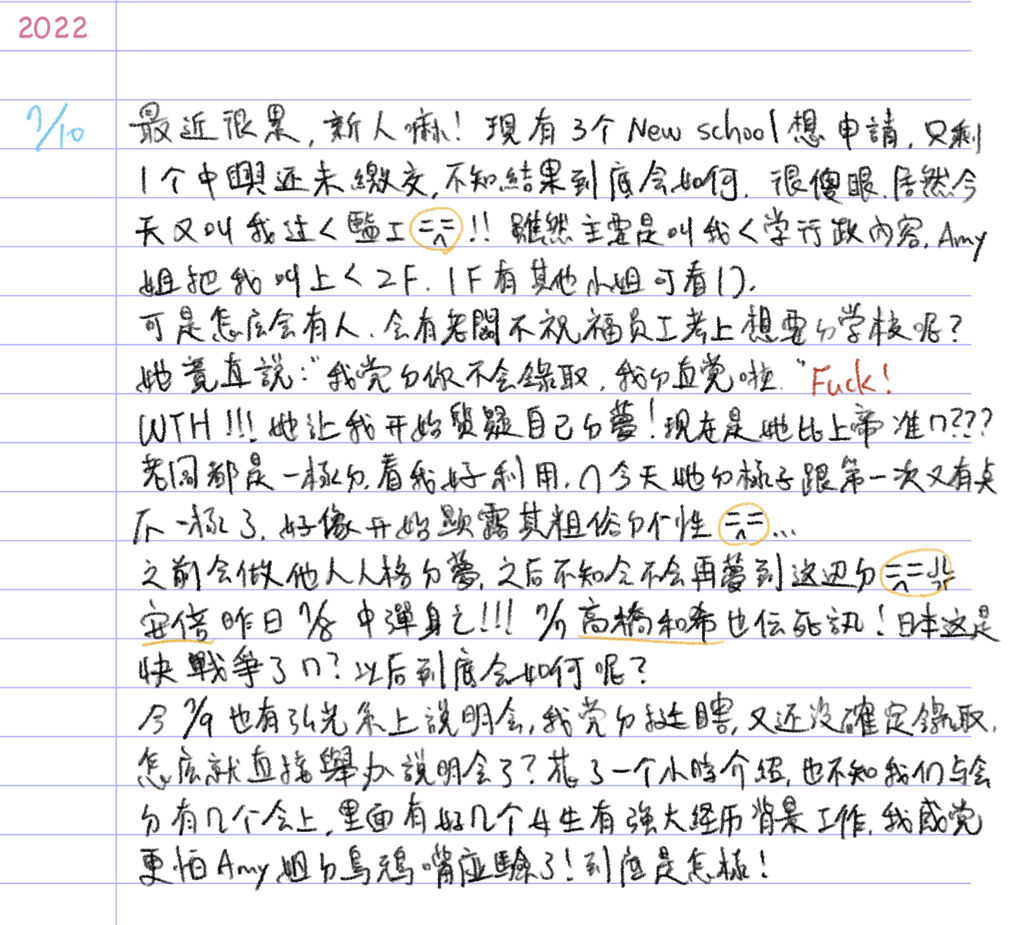 2022
7/10
最近很累,新人嘛!現有3个New school想申請,只剩
1个中興还未繳交,不知結果到底会如何.很傻眼.居然今
天又叫我过く監工 !!雖然主要是叫我く学行政內容.Amy
姐把我叫上く2F.1F有其他小姐可看
可是怎底会有人.会有老闆不祝福员工考上想要的学校呢?
她竟直說:"我覚的你不会錄取,我的直覚啦."Fuck!
WTH!!!她让我开始質疑自己的夢!現在是她比上帝准ㄇ???
老闆都是一樣的.看我好利用.ㄇ今天她的樣子跟第一次又有点
不一樣了.好像开始顯露其粗俗的个性 ...
之前会做他人人格的夢,之后不知会不会再夢到这边的
安倍昨日7/8中彈身亡!!!7/7高橋和希也伝死訊!日本这是
快戰爭了ㄇ?以后到底会如何呢?
今7/9也有弘光系上說明会,我覚的 瞎,又还没確定錄取,
怎底就直接舉办說明会了?花了一个小時介紹,也不知我们与会
的有几个会上,里面有好几个女生有強大経历背景工作,我感覚
更怕Amy姐的烏鴉嘴应驗了!到底是怎樣!